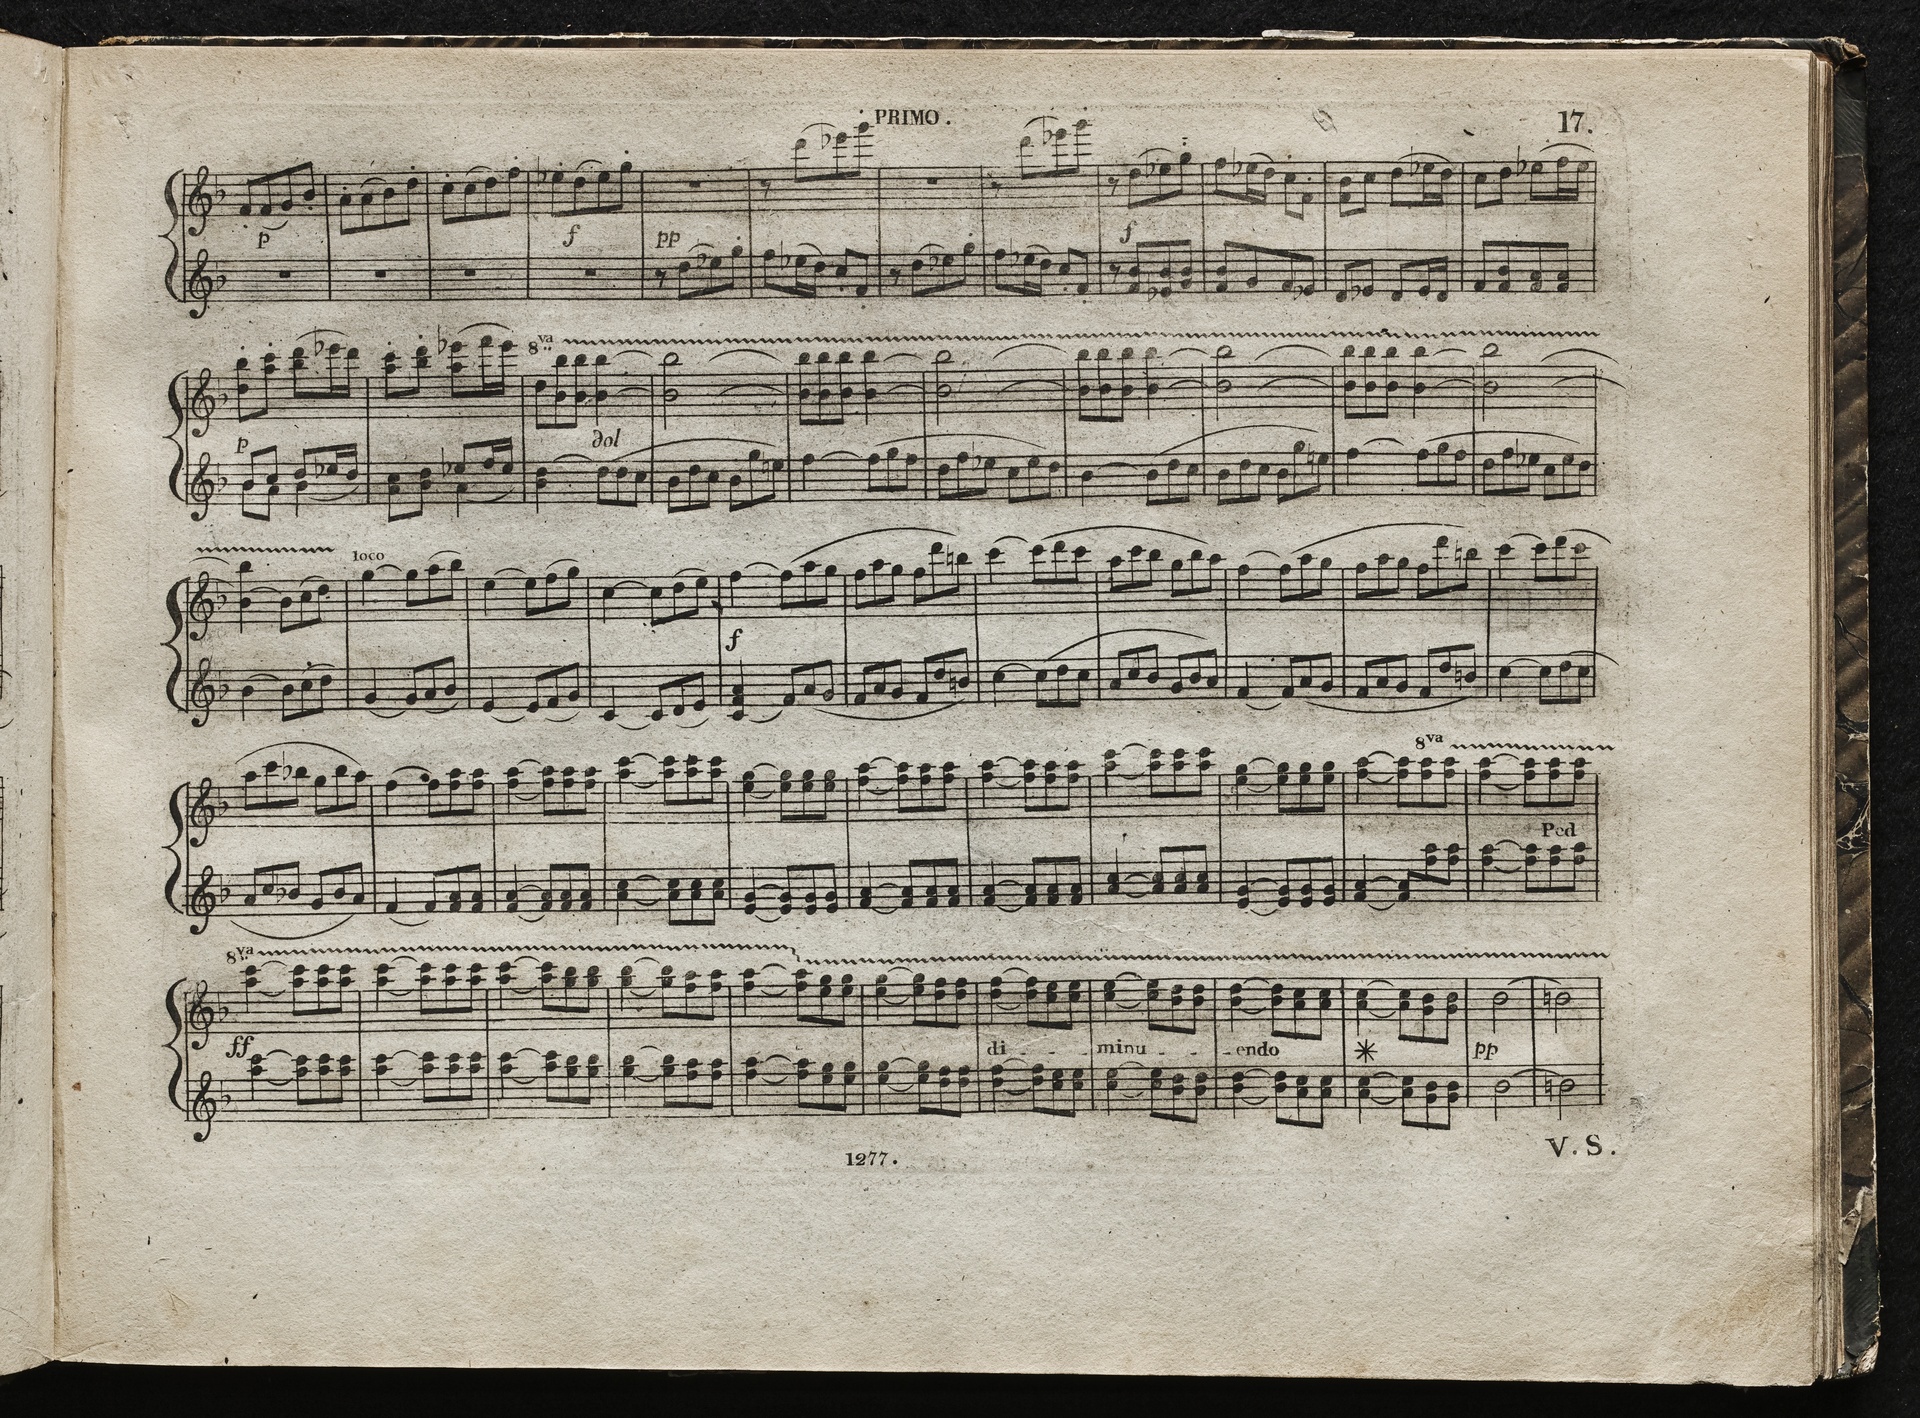 PRIMO.
17.
p f pp f
8va
p dol
loco
f
8va
Ped
8va
ff di - - - minu - - - endo pp
1277.
V. S.